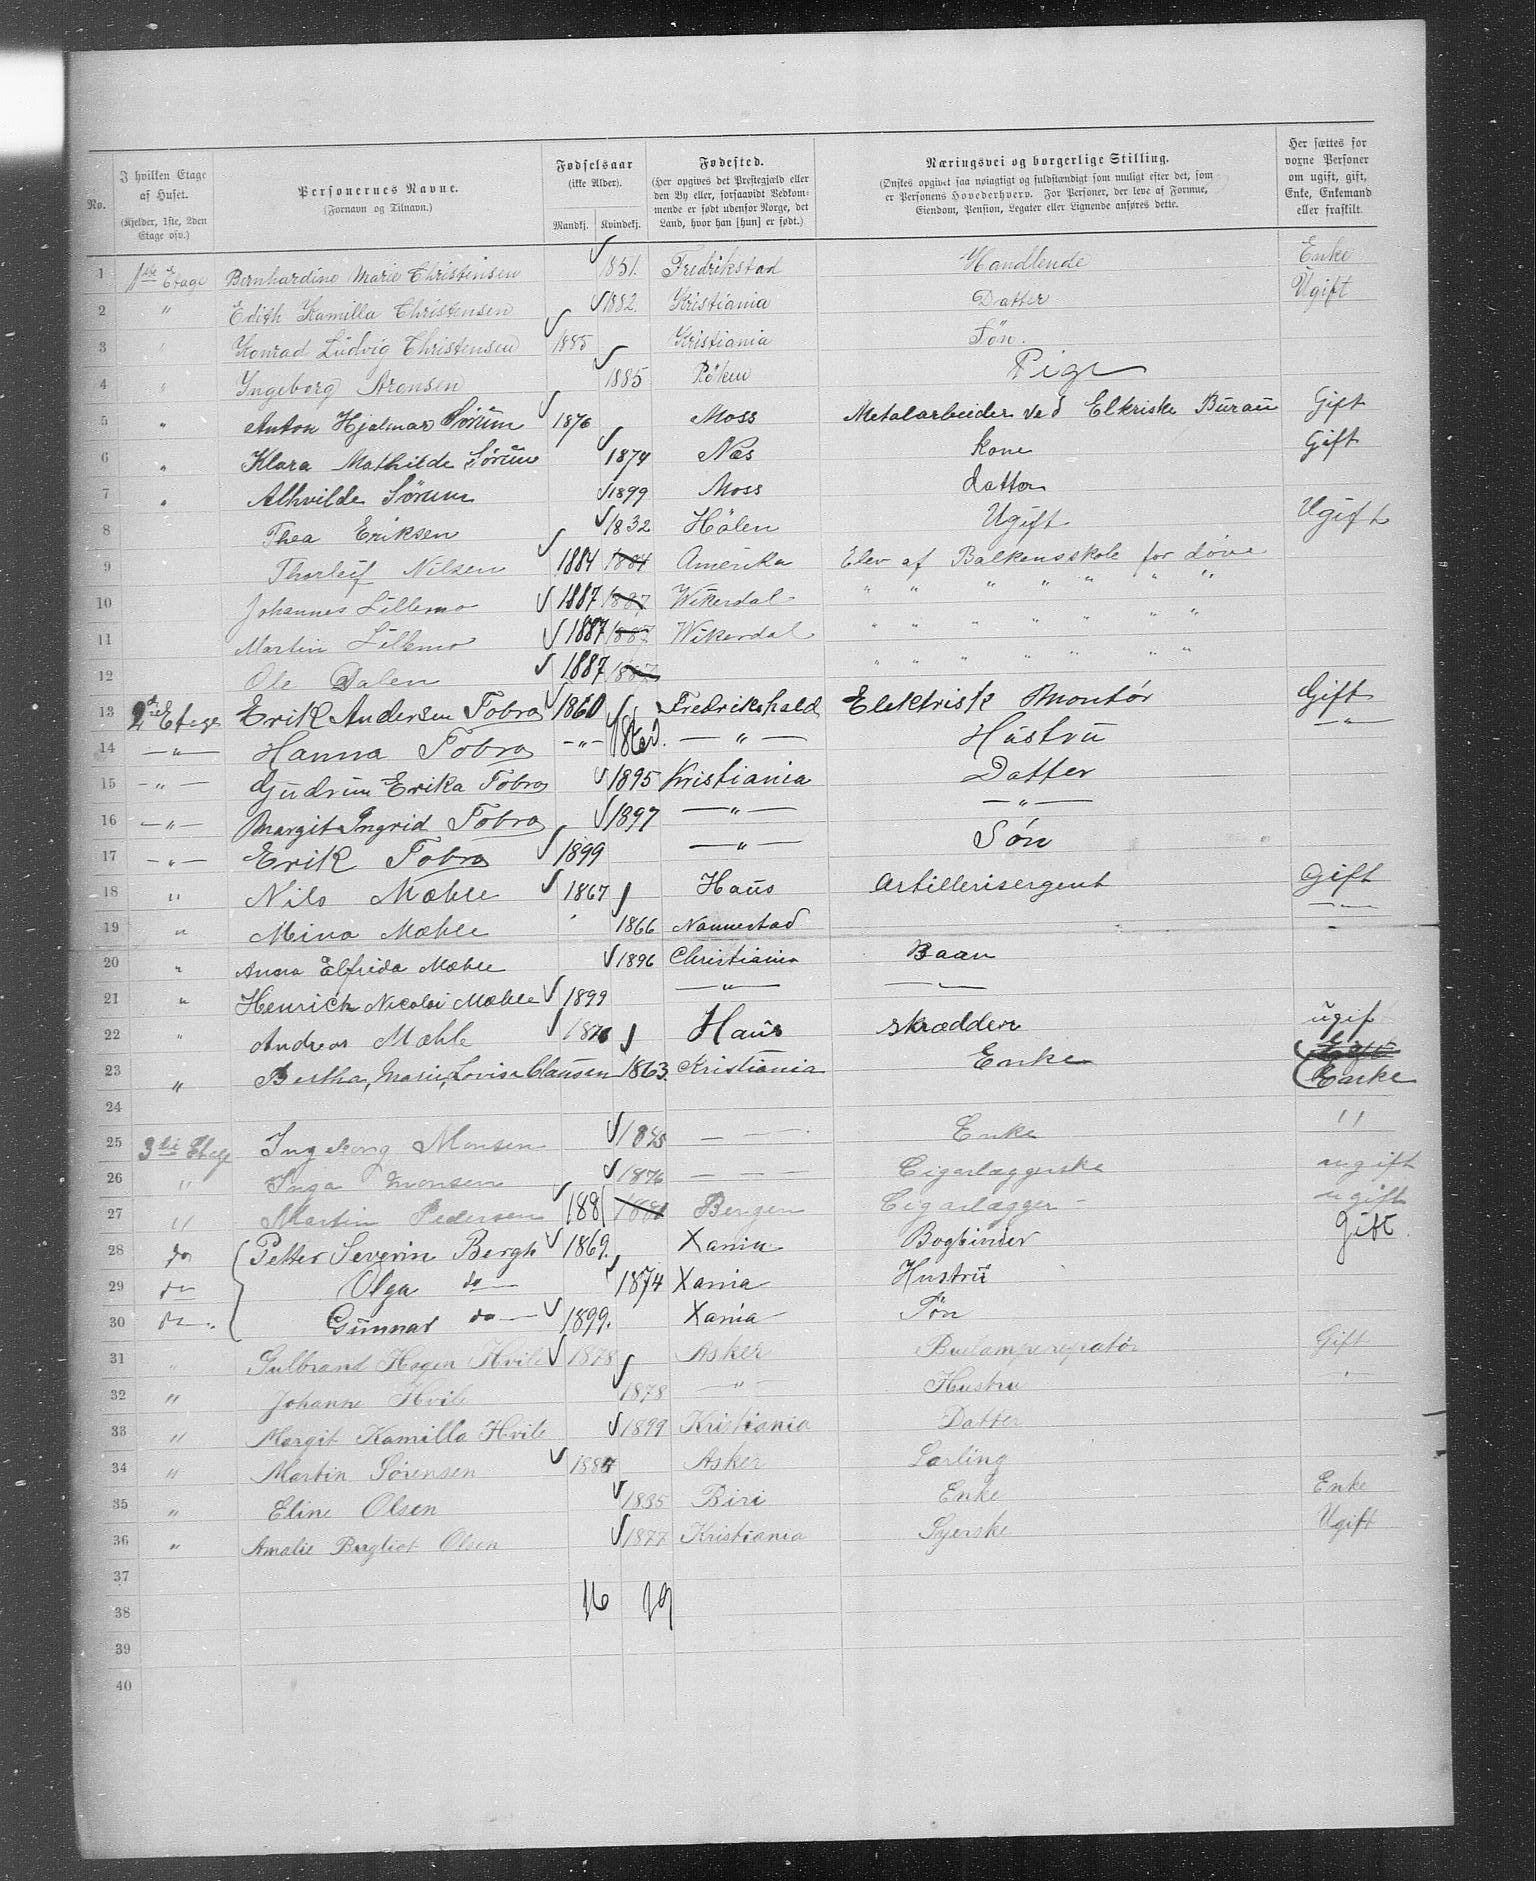 No. | I hvilken Etage af Huset. (Kjelder, 1ste, 2den Etage osv.) | Personernes Navne. (Fornavn og Tilnavn.) | Fødselsaar (ikke Alder). Mandkj. | Kvindekj. | Fødested. (Her opgives det Prestegjæld eller den By eller, forsaavidt Vedkommende er født udenfor Norge, det Land, hvor han [hun] er født.) | Næringsvei og borgerlige Stilling. (Ønskes opgivet saa nøiagtigt og fuldstændigt som muligt efter det, som er Personens Hovederhverv. For Personer, der leve af Formue, Eiendom, Pension, Legater eller Lignende anføres dette.) | Her sættes for voxne Personer om ugift, gift, Enke, Enkemand eller fraskilt.
1 1ste Etage Bernhardine Marie Christensen 1851. Fredrikstad Handlende Enke
2 " Edith Kamilla Christensen 1882. Kristiania Datter Ugift
3 " Konrad Ludvig Christensen 1885 Kristiania Søn.
4 " Ingeborg Aronsen 1885 Röken Pige
5 " Anton Hjalmar Sörum 1876 Moss Metalarbeider ved Elkriske Bürau Gift
6 " Klara Mathilde Sörum 1874 Næs kone Gift
7 " Alhvilde Sörum 1899 Moss datter
8 Thea Eriksen 1832 Hölen Ugift Ugift
9 Thorleif Nilsen 1884 1884 Amerika Elev af Balkensskole for døve
10 Johannes Lillemo 1887 1887 Wikerdal " " " " " " "
11 Martin Lillemo 1887 1887 Wikerdal " " " " " " "
12 Ole Dalen 1887 1887 " " " " " " "
13 2den Etage Erik Andersen Tobro 1860 Fredrikshald Elektrisk Montör Gift
14 — " — Hanna Tobro — " — 1860. — " — Hüstrü — " —
15 — " — Gudrun Erika Tobro 1895 Kristiania Datter
16 — " — Margit Ingrid Tobro 1897 — " — — " —
17 — " — Erik Tobro 1899 — " — Sön
18 " Nils Mæhle 1867 Haüs Artillerisergent Gift
19 " Mina Mæhle 1866 Nannestad — " —
20 " Anna Elfrida Mæhle 1896 Christiania Baan
21 " Henrich Nicolai Mæhle 1899 — " — — " —
22 " Andreas Mæhle 1876 Haüs skrædder ugift
23 " Bertha, Marie, Lovise Clausen 1863. Kristiania Enke Enke
24
25 3die Etage Ingeborg Monsen 1845 — — — Enke "
26 " Inga Monsen 1876 — — — Cigarlæggerske ugift
27 " Martin Pedersen 1881 1881 Bergen Cigarlægger ugift
28 do Petter Severin Bergh 1869. Xania Bogbinder gift.
29 do Olga do 1874 Xania Hustrü
30 do. Gunnar do 1899. Xania Søn
31 " Gulbrand Hagen Hvile 1878 Asker Buelampereparatør Gift
32 " Johanne Hvile 1878 — " — Hustru "
33 " Margit Kamilla Hvile 1899 Kristiania Datter
34 " Martin Sørensen 1884 Asker Lærling
35 " Eline Olsen 1835 Biri Enke Enke
36 " Amalie Bergliot Olsen 1877 Kristiania Syerske Ugift
37
16 19
38
39
40